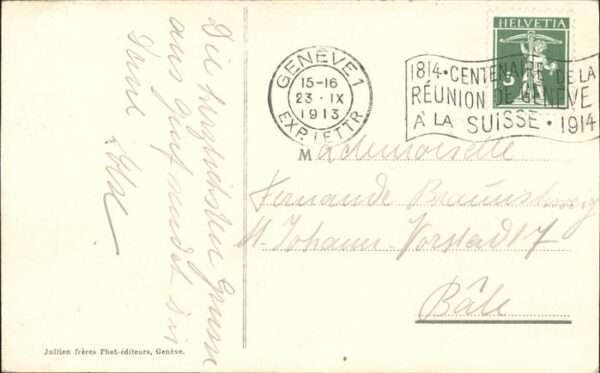 Die herzlichsten Grüsse
aus Genf sendet Dir
Tante Else
Jullien frères Phot-éditeurs, Genève.
GENÈVE 1
15-16
23 · IX
1913
EXP. LETTR
HELVETIA
5
1814 · CENTENAIRE DE LA
RÉUNION DE GENÈVE
À LA SUISSE · 1914
Mademoiselle
Fernande
St. Johann-Vorstadt 7
Bâle